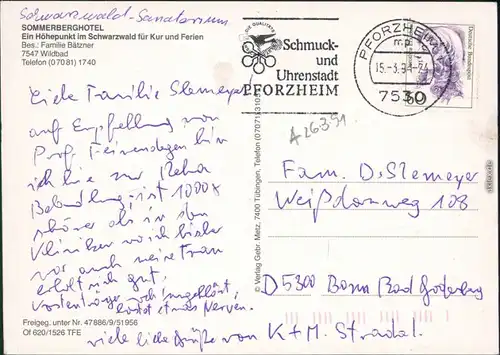 Schwarzwald-Sanatorium
SOMMERBERGHOTEL
Ein Höhepunkt im Schwarzwald für Kur und Ferien
Bes.: Familie Bätzner
7547 Wildbad
Telefon (070 81) 1740
Liebe Familie Slemeyer!
auf Empfellung von
Prof. bin
ich hie zur Reha
Behandlung ist 1000x
schöner als in den
Kliniken wo ich bisher
war auch meine Frau
erholt sich gut,
noch ungeklärt,
kostet etwas Nerven.
viele liebe Grüße von K+M. Stradal.
Freigeg. unter Nr. 47886/9/51956
Of 620/1526 TFE
© Verlag Gebr. Metz, 7400 Tübingen, Telefon (07071)
Schmuck-
und
Uhrenstadt
PFORZHEIM
PFORZHEIM
15.-3.94-21
7530
Deutsche Bundespost
A26391
Fam. D. Slemeyer
Weißdornweg 108
D 5300 Bonn Bad Godesberg